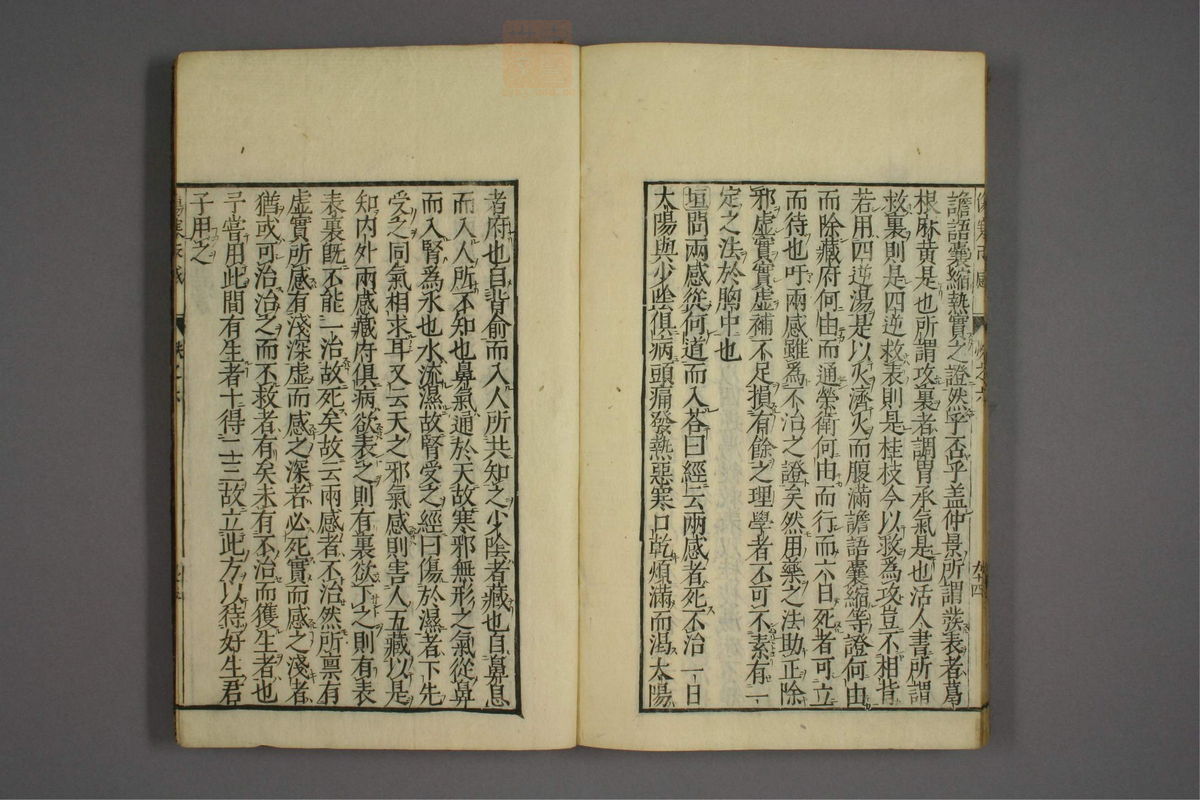 譫語囊縮熱實之證然乎否乎盖仲景所謂發表者葛
根麻黃是也所謂攻裏者調胃承氣是也活人書所謂
救裏則是四逆救表則是桂枝今以救爲攻豈不相背
若用四逆湯是以火濟火而腹滿譫語囊縮等證何由
而除藏府何由而通榮衛何由而行而六日死者可立
而待也吁兩感雖爲不治之證矣然用藥之法助正除
邪虛實實虛補不足損有餘之理學者不可不素有一
定之法於胸中也
垣問兩感從何道而入荅曰經云兩感者死不治一日
太陽與少陰俱病頭痛發熱惡寒口乾煩滿而渴太陽
者府也自背俞而入人所共知之少陰者藏也自鼻息
而入人所不知也鼻氣通於天故寒邪無形之氣從鼻
而入腎爲水也水流濕故腎受之經曰傷於濕者下先
受之同氣相求耳又云天之邪氣感則害人五藏以是
知内外兩感藏府俱病欲表之則有裏欲下之則有表
表裏既不能一治故死矣故云兩感者不治然所禀有
虛實所感有淺深虛而感之深者必死實而感之淺者
猶或可治治之而不救者有矣未有不治而獲生者也
予甞用此間有生者十得二三故立此方以待好生君
子用之